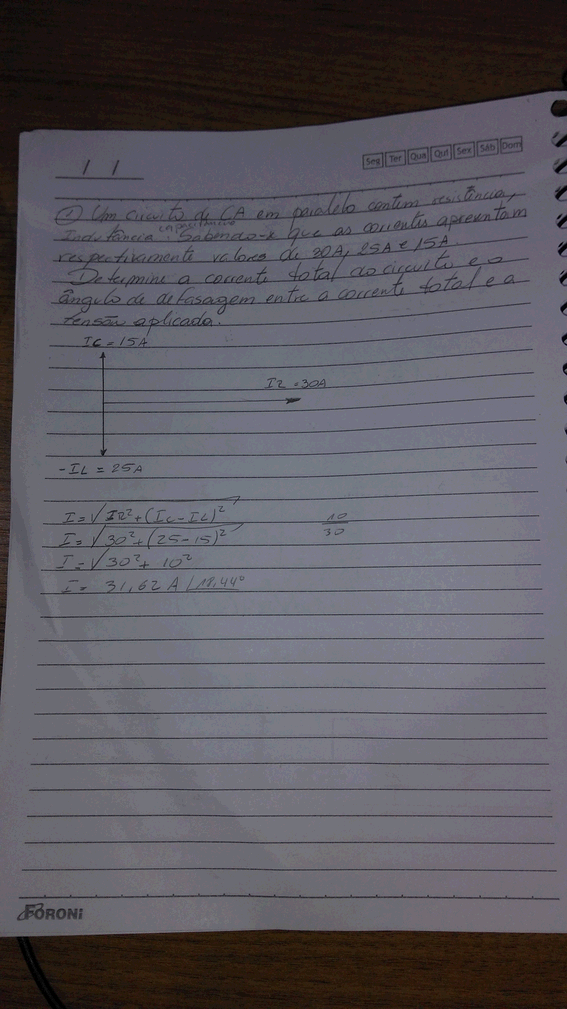 / /
Seg Ter Qua Qui Sex Sáb Dom
① Um circuito de CA em paralelo contem resistência,
capacitância
Indutância. Sabendo-se que as correntes apresentam
respectivamente valores de 30A, 25A e 15A.
Determine a corrente total do circuito e o
ângulo de defasagem entre a corrente total e a
tensão aplicada.
IC = 15A
IR = 30A
-IL = 25A
I = √IR² + (IC - IL)²
I = √30² + (25 - 15)²
10
30
I = √30² + 10²
I = 31,62 A ∠18,44°
FORONI